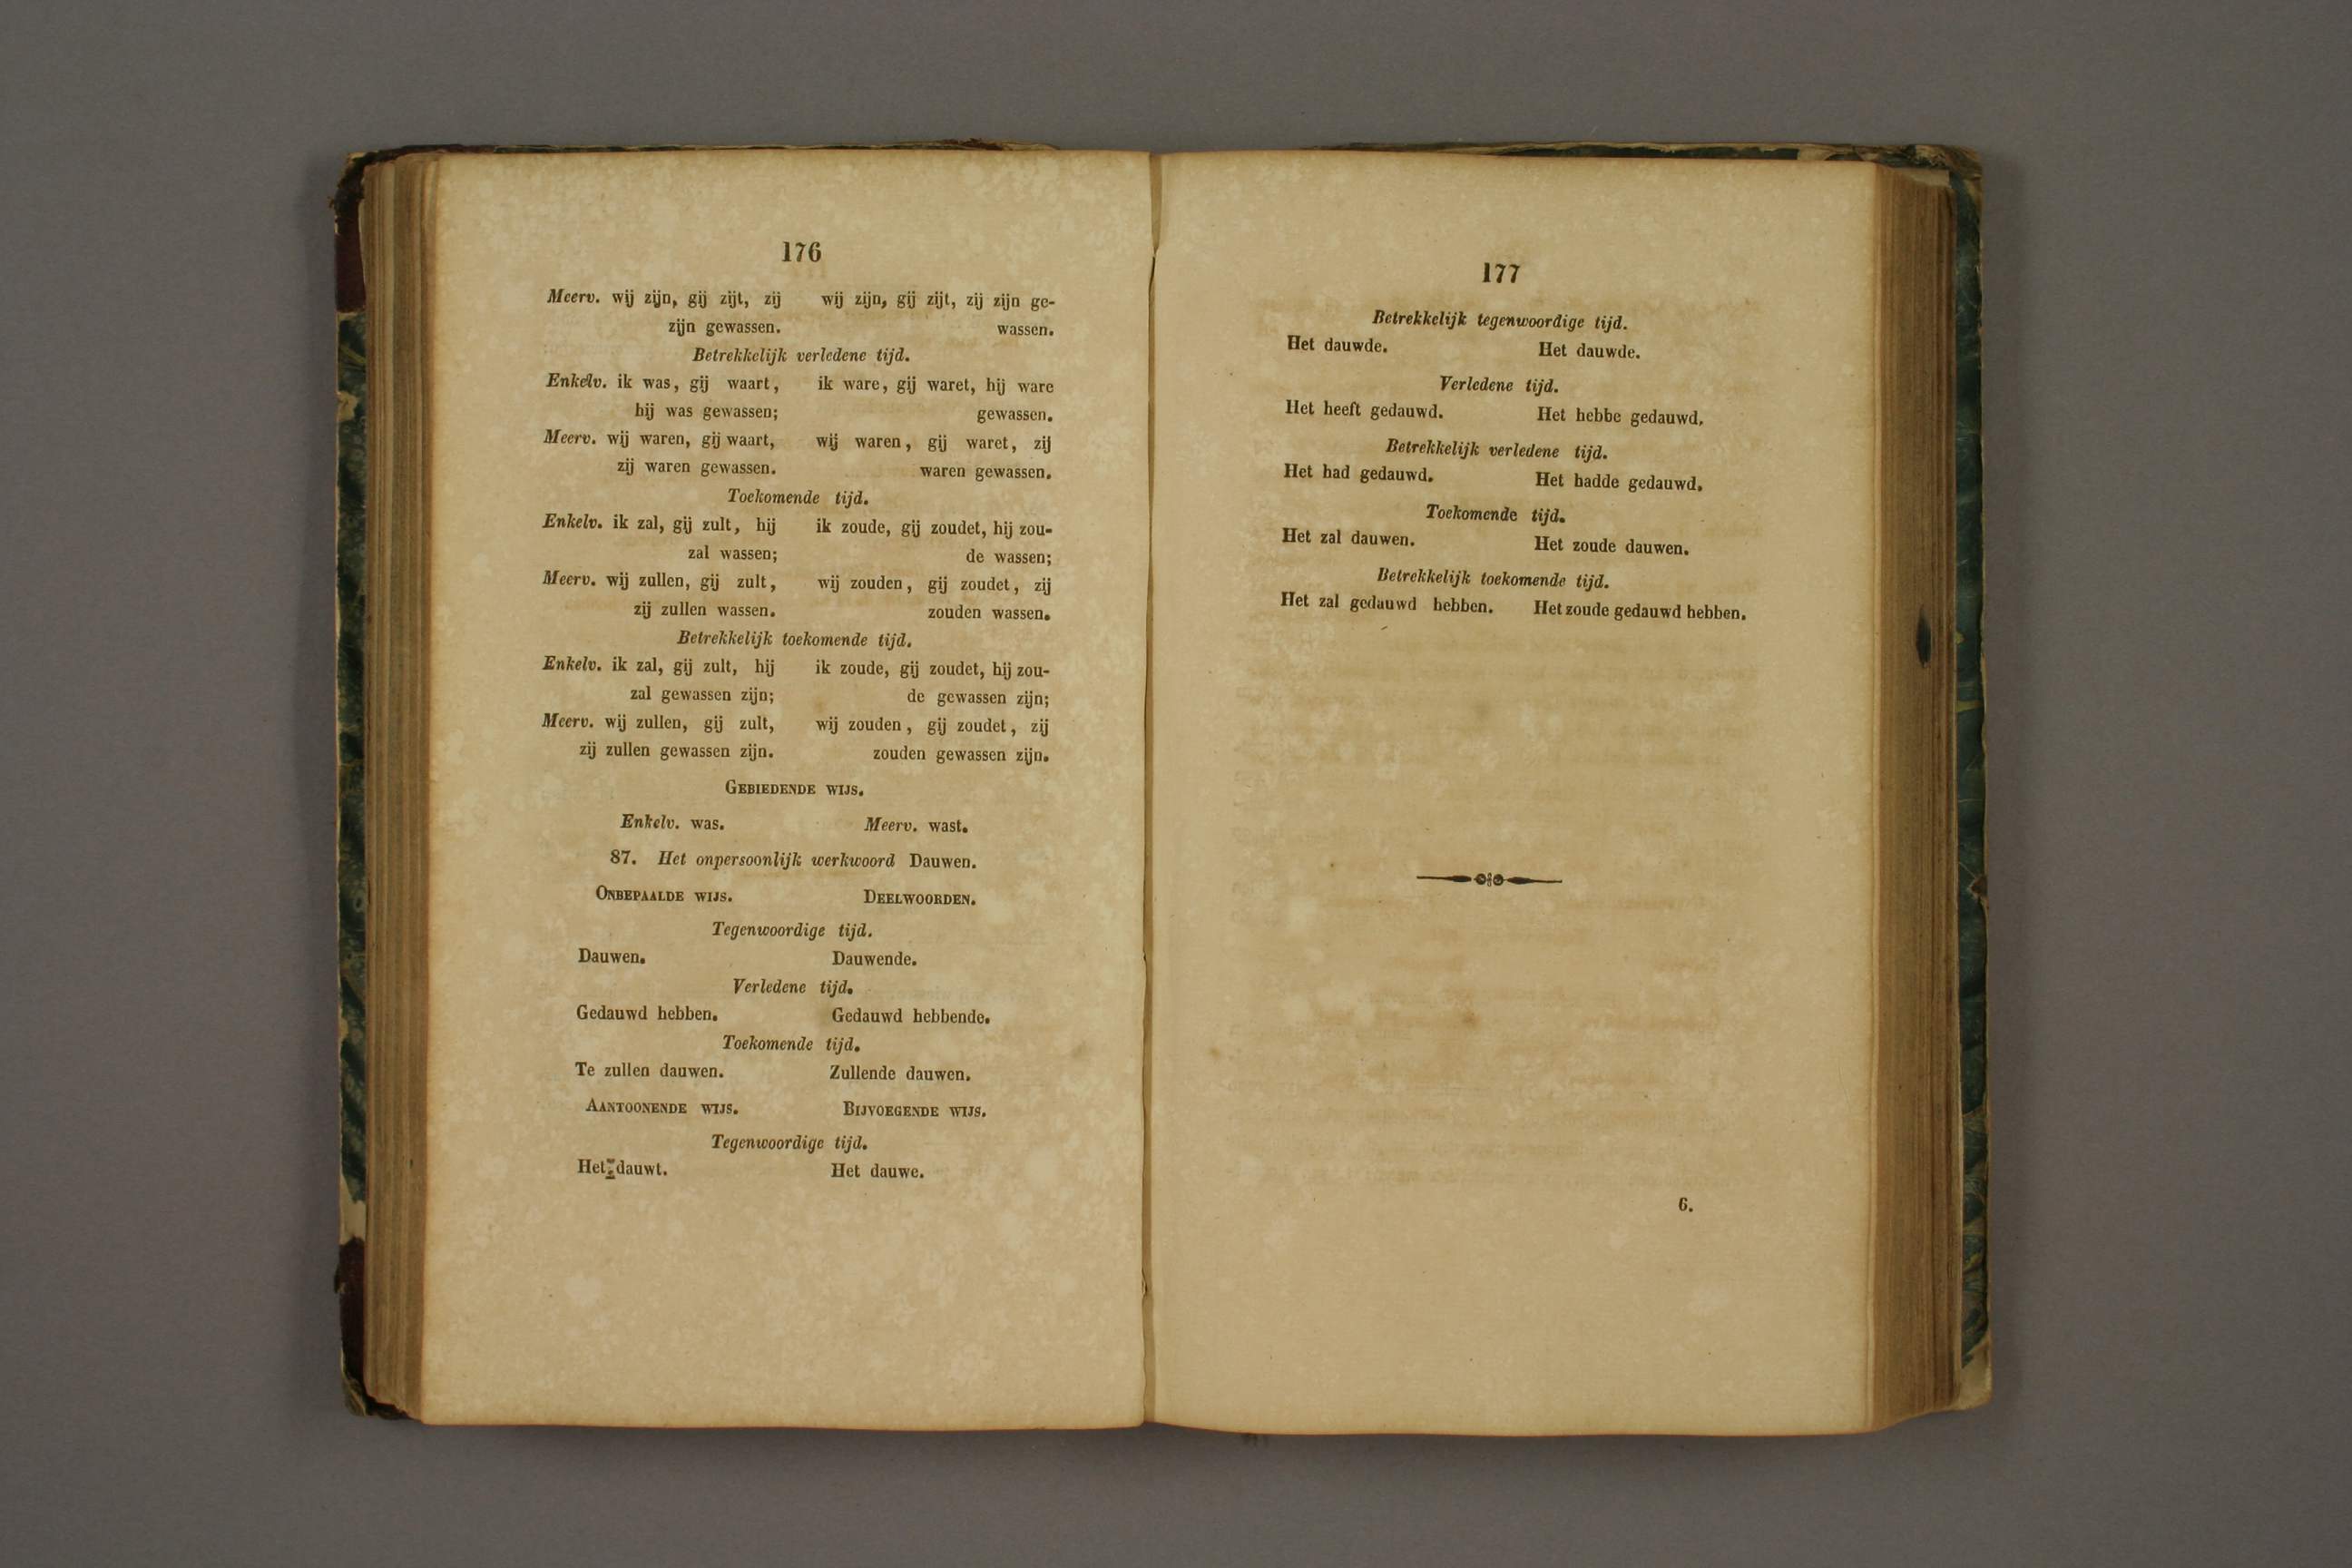 176
Meerv. wij zijn, gij zijt, zij wij zijn, gij zijt, zij zijn ge-
zijn gewassen. wassen.
Betrekkelijk verledene tijd.
Enkelv. ik was, gij waart, ik ware, gij waret, hij ware
hij was gewassen; gewassen.
Meerv. wij waren, gij waart, wij waren, gij waret, zij
zij waren gewassen. waren gewassen.
Toekomende tijd.
Enkelv. ik zal, gij zult, hij ik zoude, gij zoudet, hij zou-
zal wassen; de wassen;
Meerv. wij zullen, gij zult, wij zouden, gij zoudet, zij
zij zullen wassen. zouden wassen.
Betrekkelijk toekomende tijd.
Enkelv. ik zal, gij zult, hij ik zoude, gij zoudet, hij zou-
zal gewassen zijn; de gewassen zijn;
Meerv. wij zullen, gij zult, wij zouden, gij zoudet, zij
zij zullen gewassen zijn. zouden gewassen zijn.
GEBIEDENDE WIJS.
Enkelv. was. Meerv. wast.
87. Het onpersoonlijk werkwoord Dauwen.
ONBEPAALDE WIJS. DEELWOORDEN.
Tegenwoordige tijd.
Dauwen. Dauwende.
Verledene tijd.
Gedauwd hebben. Gedauwd hebbende.
Toekomende tijd.
Te zullen dauwen. Zullende dauwen.
AANTOONENDE WIJS. BIJVOEGENDE WIJS.
Tegenwoordige tijd.
Het dauwt. Het dauwe.
177
Betrekkelijk tegenwoordige tijd.
Het dauwde. Het dauwde.
Verledene tijd.
Het heeft gedauwd. Het hebbe gedauwd.
Betrekkelijk verledene tijd.
Het had gedauwd. Het hadde gedauwd.
Toekomende tijd.
Het zal dauwen. Het zoude dauwen.
Betrekkelijk toekomende tijd.
Het zal gedauwd hebben. Het zoude gedauwd hebben.
6.